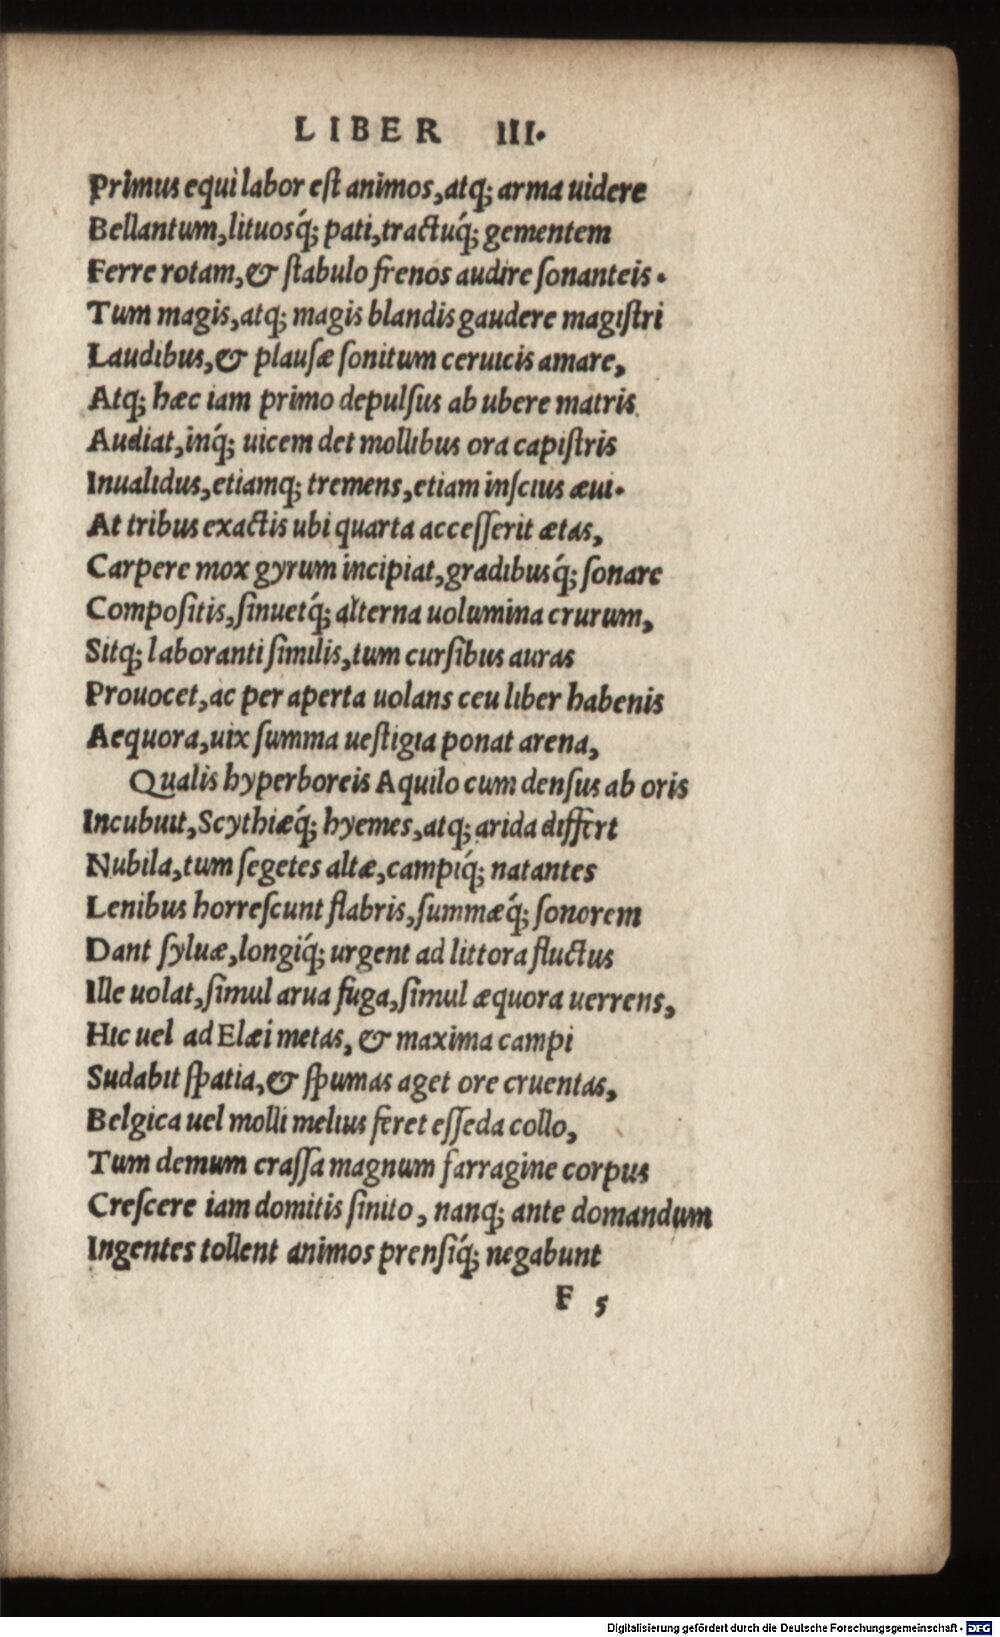 LIBER III.
Primus equi labor eſt animos, atq; arma uidere
Bellantum, lituosq́; pati, tractuq́; gementem
Ferre rotam, & ſtabulo frenos audire ſonanteis.
Tum magis, atq; magis blandis gaudere magiſtri
Laudibus, & plauſæ ſonitum ceruicis amare,
Atq; hæc iam primo depulſus ab ubere matris.
Audiat, inq́; uicem det mollibus ora capiſtris
Inualidus, etiamq; tremens, etiam inſcius æui.
At tribus exactis ubi quarta acceſſerit ætas,
Carpere mox gyrum incipiat, gradibusq́; ſonare
Compoſitis, ſinuetq́; alterna uolumina crurum,
Sitq; laboranti ſimilis, tum curſibus auras
Prouocet, ac per aperta uolans ceu liber habenis
Aequora, uix ſumma ueſtigia ponat arena,
Qualis hyperboreis Aquilo cum denſus ab oris
Incubuit, Scythiæq́; hyemes, atq; arida differt
Nubila, tum ſegetes altæ, campiq́; natantes
Lenibus horreſcunt flabris, ſummæq́; ſonorem
Dant ſyluæ, longiq́; urgent ad littora fluctus
Ille uolat, ſimul arua fuga, ſimul æquora uerrens,
Hic uel ad Elæi metas, & maxima campi
Sudabit ſpatia, & ſpumas aget ore cruentas,
Belgica uel molli melius feret eſſeda collo,
Tum demum craſſa magnum farragine corpus
Creſcere iam domitis ſinito, nanq; ante domandum
Ingentes tollent animos prenſiq́; negabunt
F 5
Digitalisierung gefördert durch die Deutsche Forschungsgemeinschaft - DFG